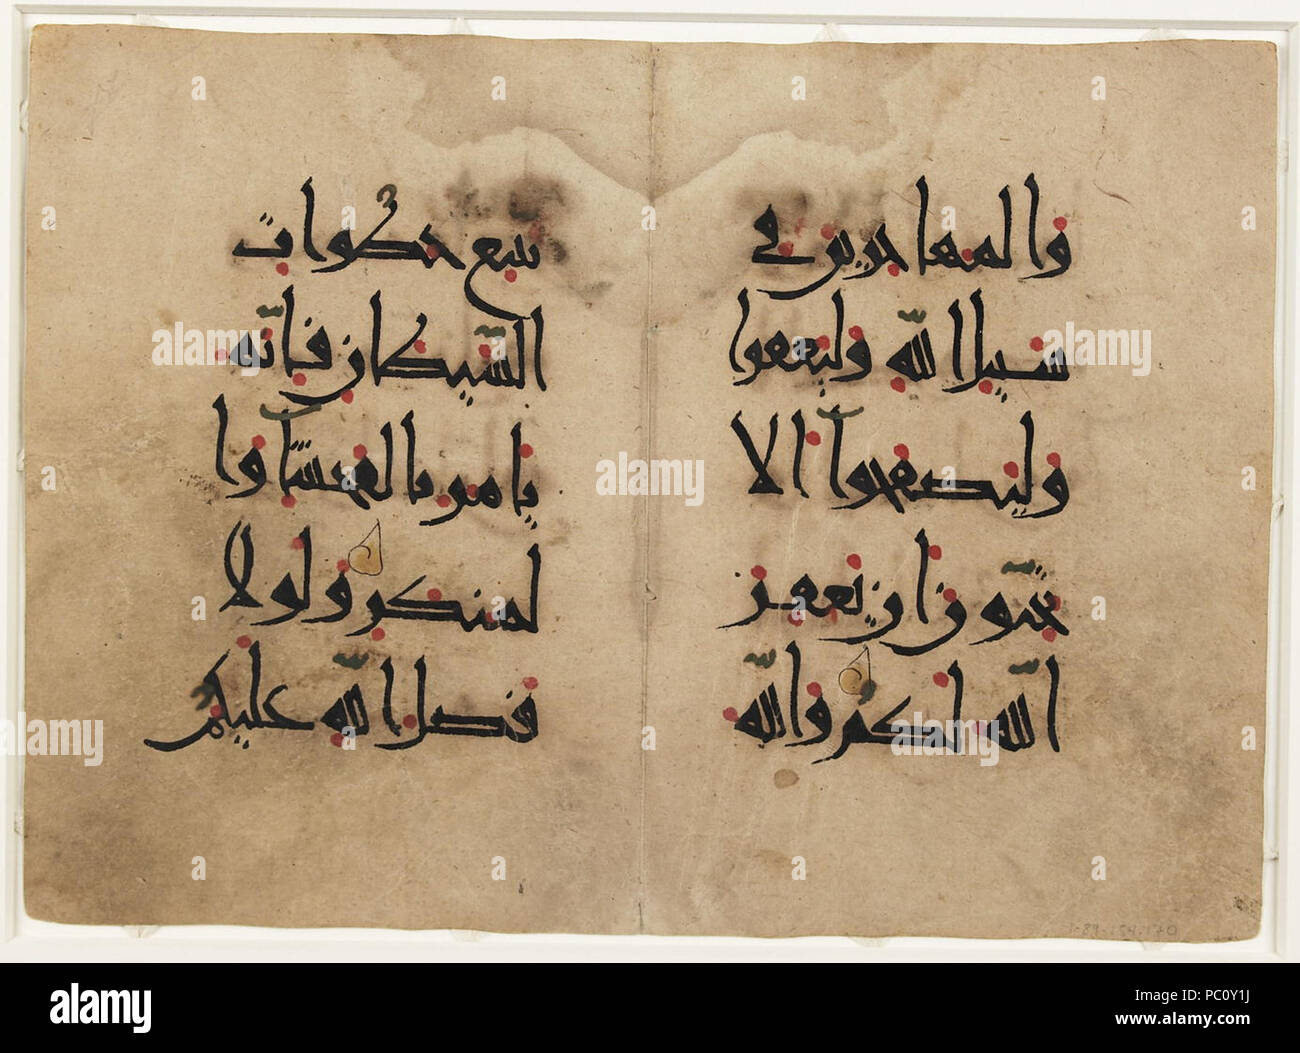 والمهاجرين في
سبيل الله وليعفوا
وليصفحوا الا
تحبون ان يغفر
الله لكم والله
يتبع خطوات
الشيطان فانه
يامر بالفحشآ وا
لمنكر ولولا
فضل الله عليكم
alamy
alamy
Image ID: PC0Y1J
www.alamy.com